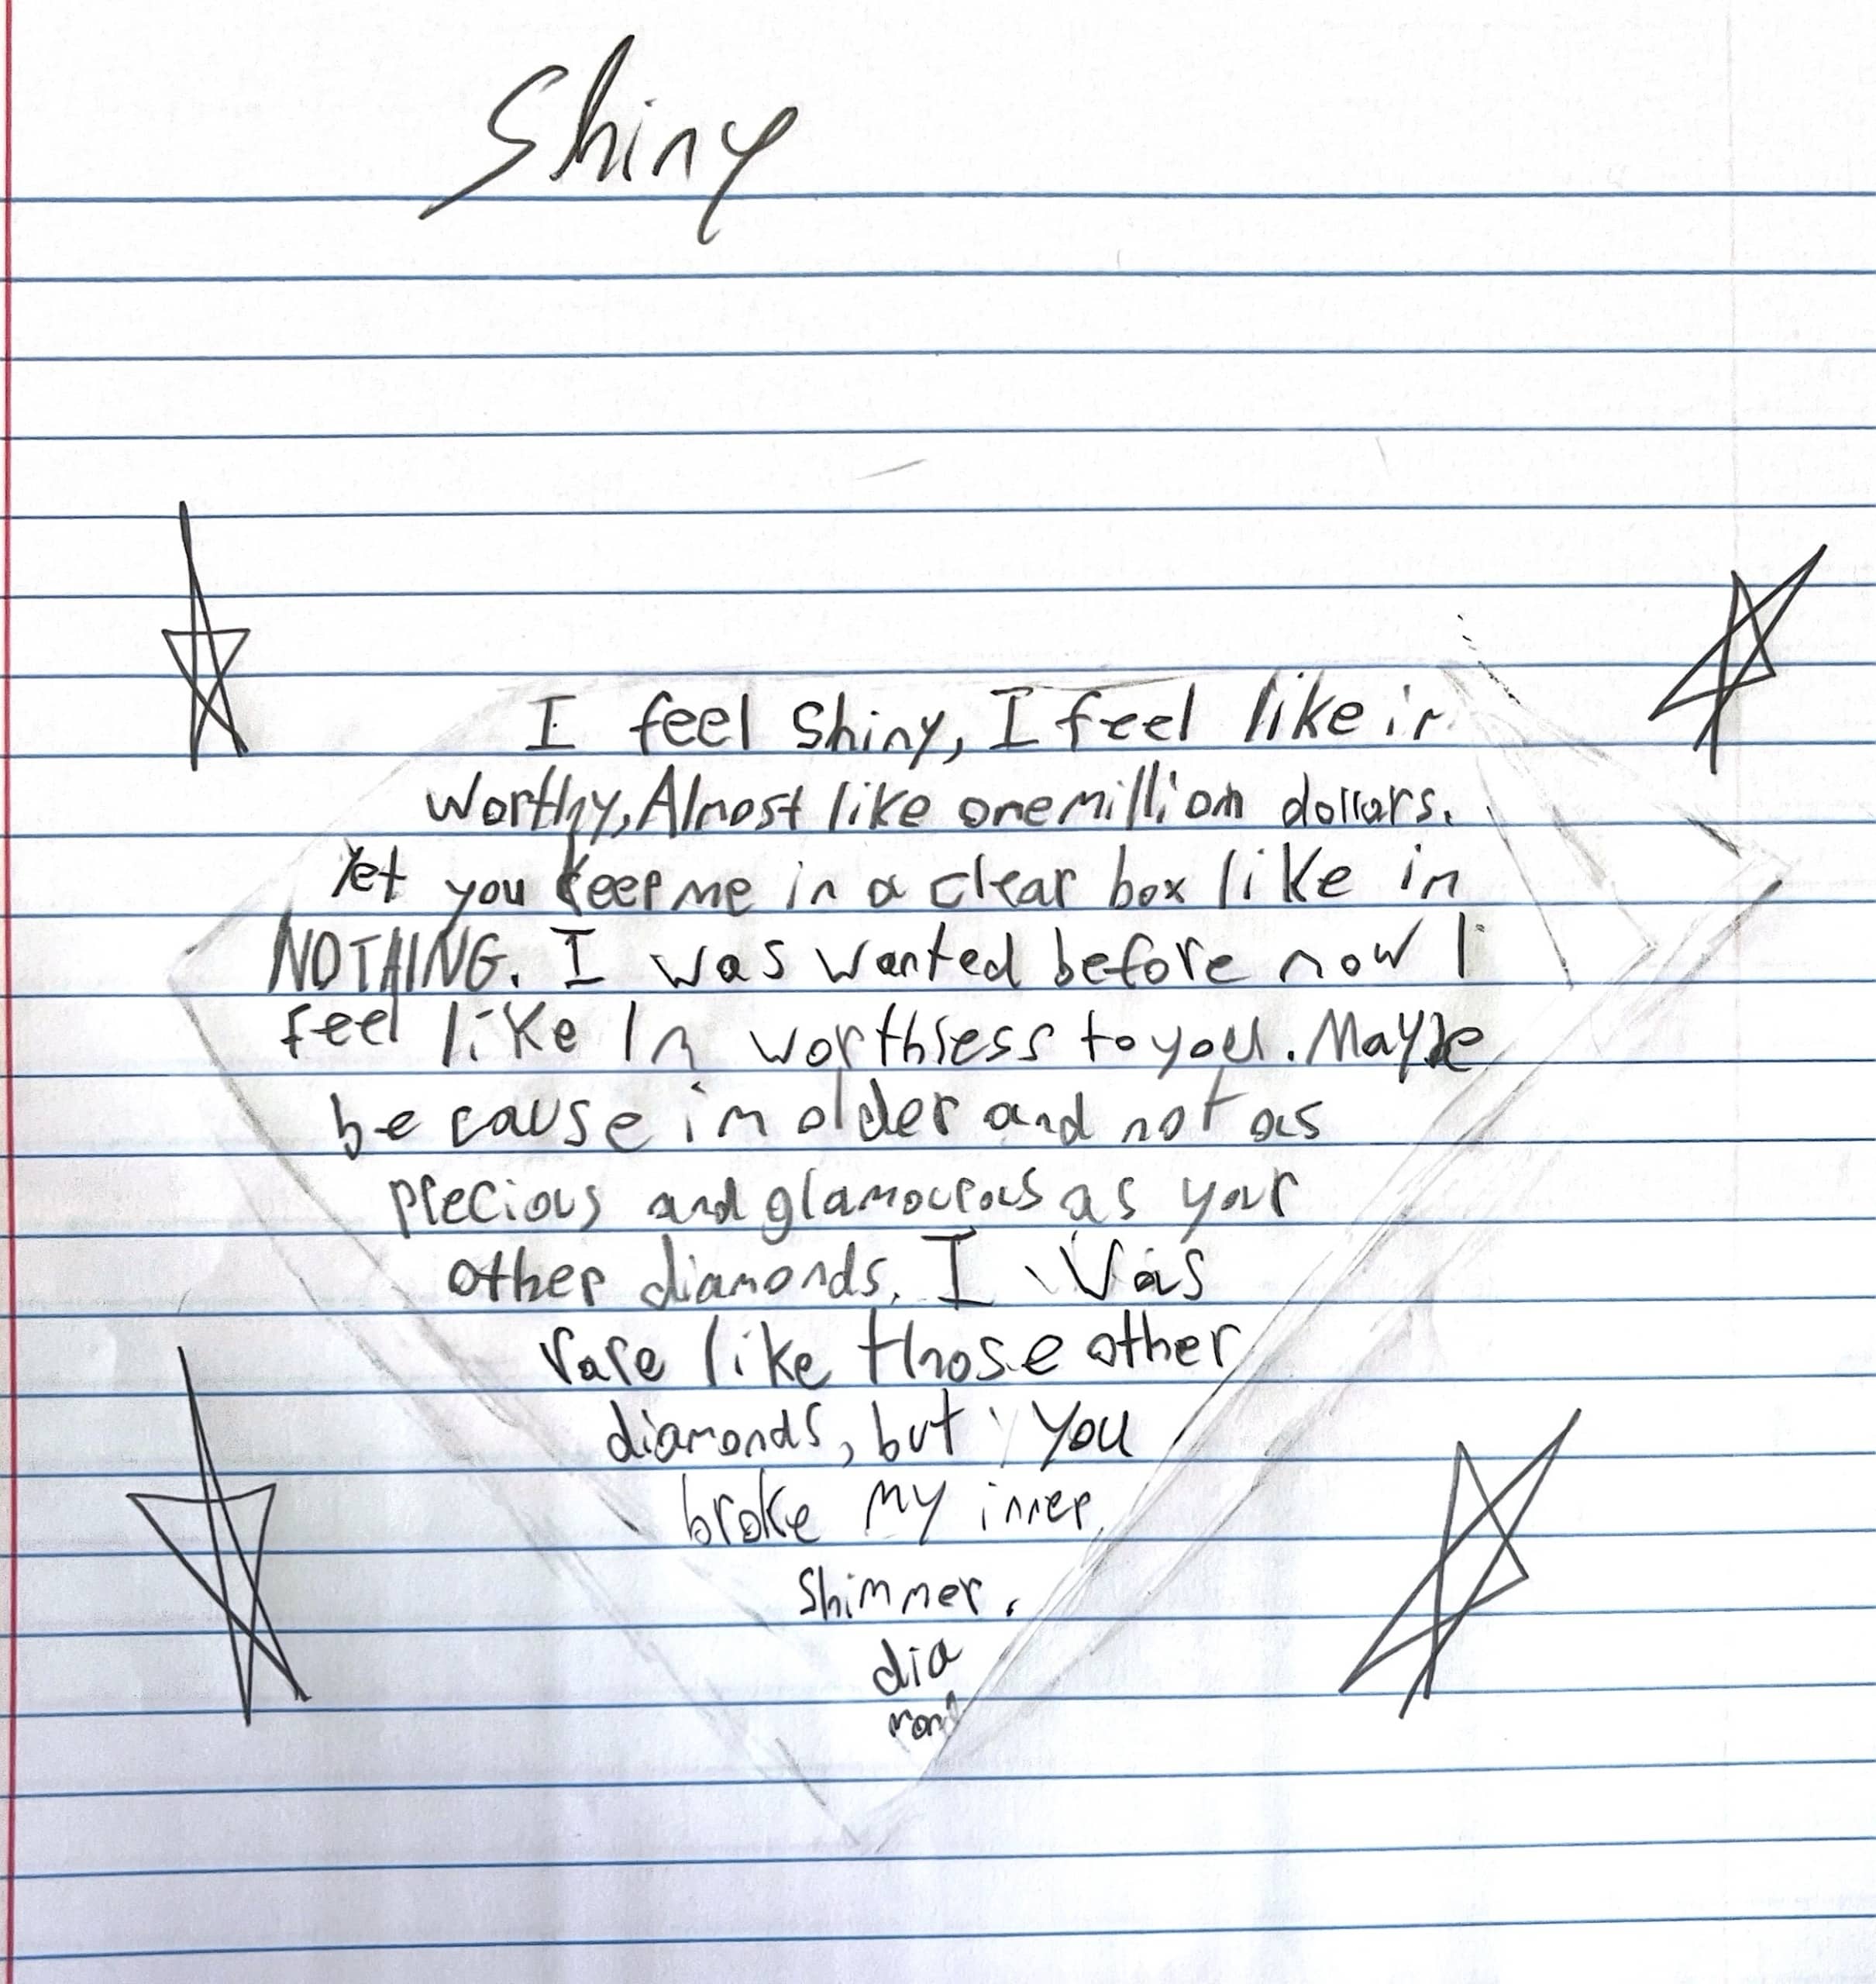 Shiny
I feel shiny, I feel like im
worthy, Almost like one million dollars.
Yet you keep me in a clear box like im
NOTHING. I was wanted before now I
feel like Im worthless to you. Maybe
be cause im older and not as
precious and glamourous as your
other diamonds. I was
rare like those other
diamonds, but you
broke my inner
shimmer.
dia
mond